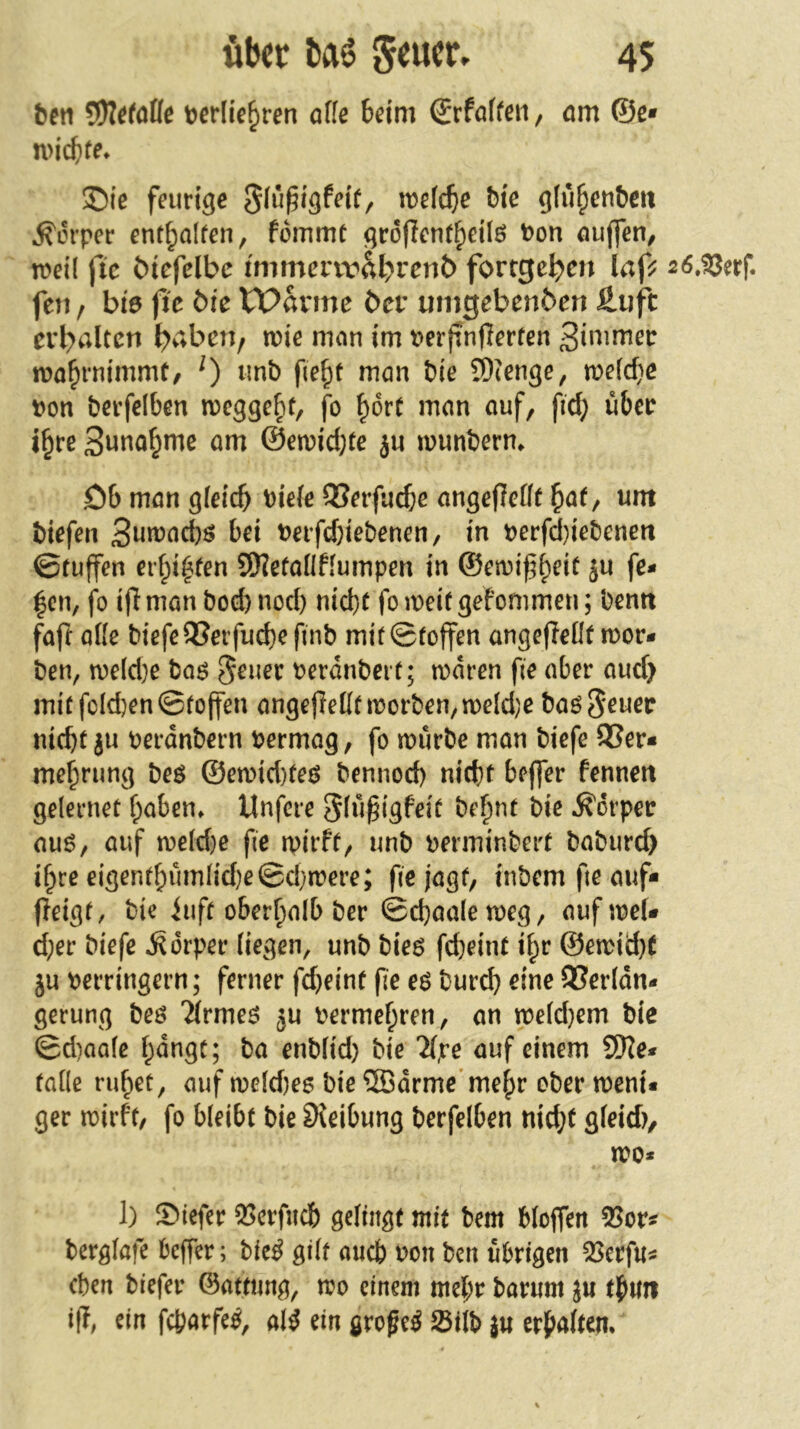 über das Feuer. 45
den Metalle verliehren alle beim Erkalten, am Ge-
wichte.
Die feurige Flüßigkeit, welche die glühenden
Körper enthalten, kommt größtentheils von aussen,
weil sie dieselbe immerwährend fortgehen las- 26.Verf.
sen, bis sie die Wärme der umgebenden Luft
erhalten haben, wie man im verfinsterten Zimmer
wahrnimmt, l) und sieht man die Menge, welche
von derselben weggeht, so hört man auf, sich über
ihre Zunahme am Gewichte zu wundern.
Ob man gleich viele Versuche angestellt hat, um
diesen Zuwachs bei verschiedenen, in verschiedenen
Stuffen erhitzten Metallklumpen in Gewißheit zu se-
tzen, so ist man doch noch nicht so weit gekommen; denn
fast alle diese Versuche sind mit Stoffen angestellt wor-
den, welche das Feuer verändert; wären sie aber auch
mit solchen Stoffen angestellt worden, welche das Feuer
nicht zu verändern vermag, so würde man diese Ver-
mehrung des Gewichtes dennoch nicht besser kennen
gelernet haben. Unsere Flüßigkeit dehnt die Körper
aus, auf welche sie wirkt, und vermindert dadurch
ihre eigenthümliche Schwere; sie jagt, indem sie auf-
steigt, die Luft oberhalb der Schaale weg, auf wel-
cher diese Körper liegen, und dies scheint ihr Gewicht
zu verringern; ferner scheint sie es durch eine Verlän-
gerung des Armes zu vermehren, an welchem die
Schaale hängt; da endlich die Axe auf einem Me-
talle ruhet, auf welches die Wärme mehr oder weni-
ger wirkt, so bleibt die Reibung derselben nicht gleich,
wo-
l) Dieser Versuch gelingt mit dem blossen Vor-
derglase besser; dies gilt auch von den übrigen Versu-
chen dieser Gattung, wo einem mehr darum zu thun
ist, ein scharfes, als ein großes Bild zu erhalten.